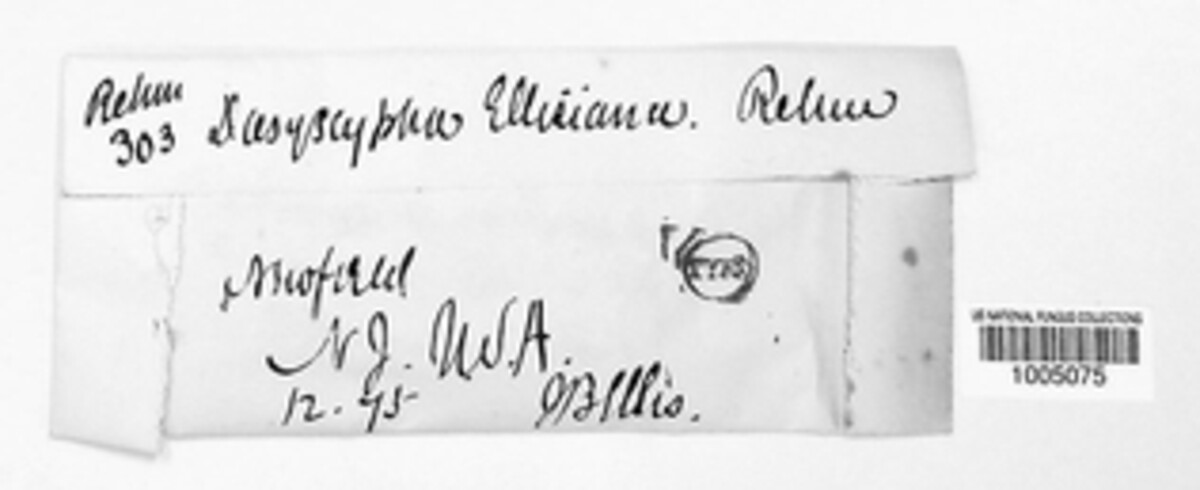 Rehm
303
Dasyscypha Ellisiana. Rehm
Newfield
N J. U.S.A.
12. 75
JB Ellis.
US NATIONAL FUNGUS COLLECTIONS
1005075